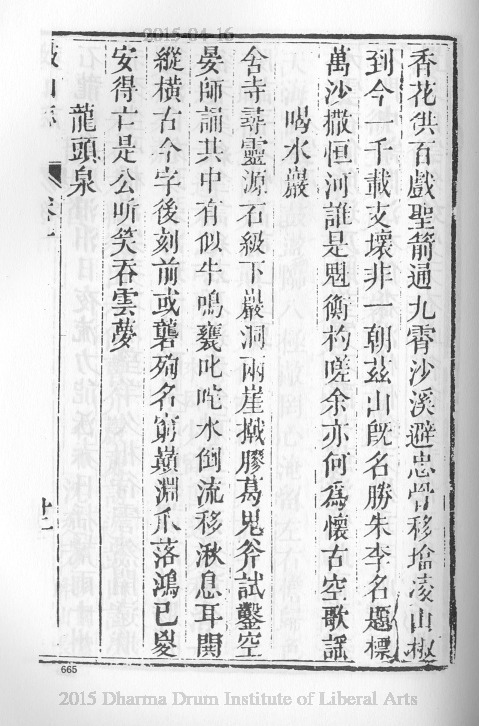 2015-04-16
香花供百戲聖箭通九霄沙溪避忠骨移墖凌山椒
到今一千載支壞非一朝茲山旣名勝朱李名題標
萬沙撒恒河誰是魁衡杓嗟余亦何爲懷古空歌謡
喝水巖
舍寺尋靈源石級下巖洞兩崖撠膠葛鬼斧試鑿空
晏師誦其中有似牛鳴甕叱咜水倒流移湫息耳閧
縱橫古今字後刻前或礱殉名窮巔淵爪落鴻已夐
安得亡是公听笑吞雲夢
龍頭泉
鼓山志 卷十
十二
665
2015 Dharma Drum Institute of Liberal Arts